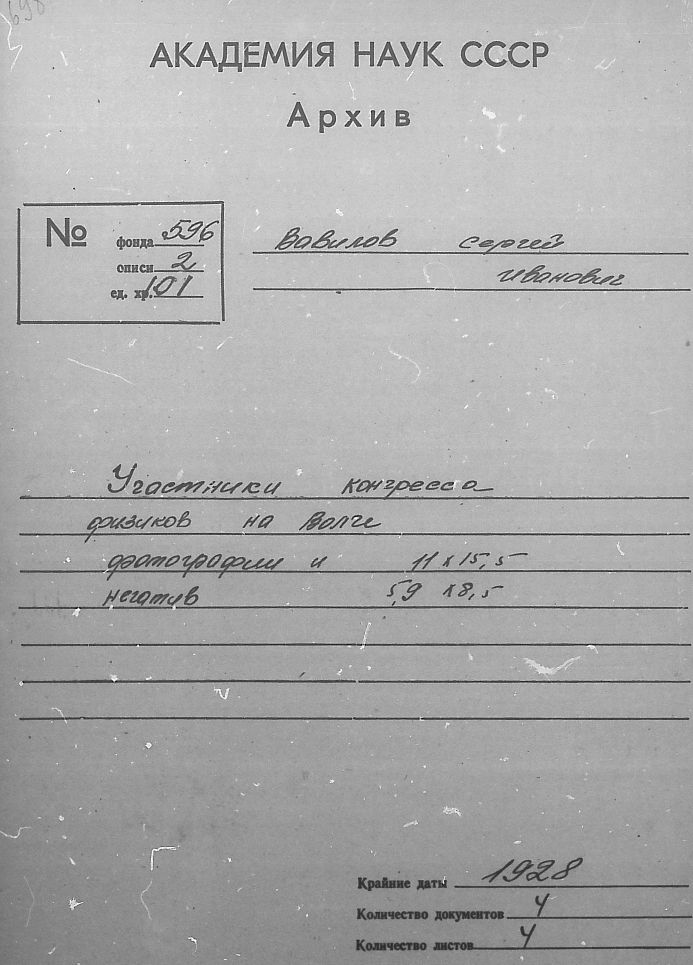 698
АКАДЕМИЯ НАУК СССР
Архив
№ фонда 596
описи 2
ед. хр. 101
Вавилов Сергей
Иванович
Участники конгресса
физиков на Волге
фотографии и 11 x 15,5
негатив 5,9 x 8,5
Крайние даты 1928
Количество документов 4
Количество листов 4